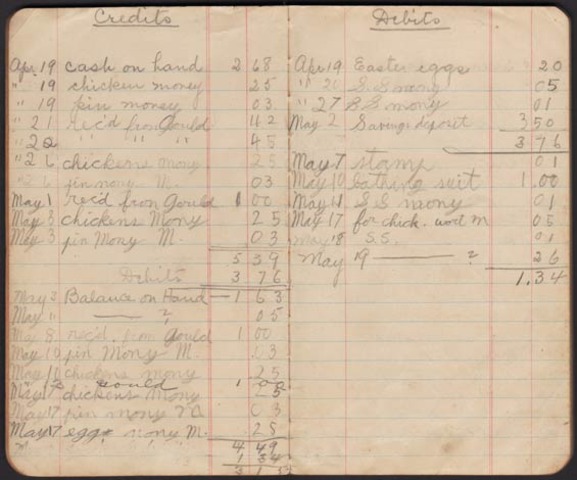 Credits
Apr. 19 cash on hand 2 68
" 19 chicken money 25
" 19 pin money 03
" 21 rec'd from Gould 42
" 22 " " " 45
" 26 chickens mony 25
" 26 pin mony M. 03
May 1 rec'd from Gould 1 00
May 3 chickens Mony 25
May 3 pin Mony M. 03
5 39
Debits 3 76
May 3 Balance on Hand — 1 63
May " — ? 05
May 8 rec'd. from Gould 1 00
May 10 pin Mony M. 03
May 10 chickens mony 25
Gould 1 00
May 17 chickens Mony 25
May 17 pin mony 03
May 17 eggs mony M. 25
4 49
1 34
3 15
Debits
Apr 19 Easter eggs 20
" 20 S.S mony 05
" 27 S.S mony 01
May 2 Savings deposit 3 50
3 76
May 7 stamp 01
May 10 bathing suit 1.00
May 11 S.S mony 01
May 17 for chick. M 05
May 18 S.S. 01
May 19 — ? 26
1.34